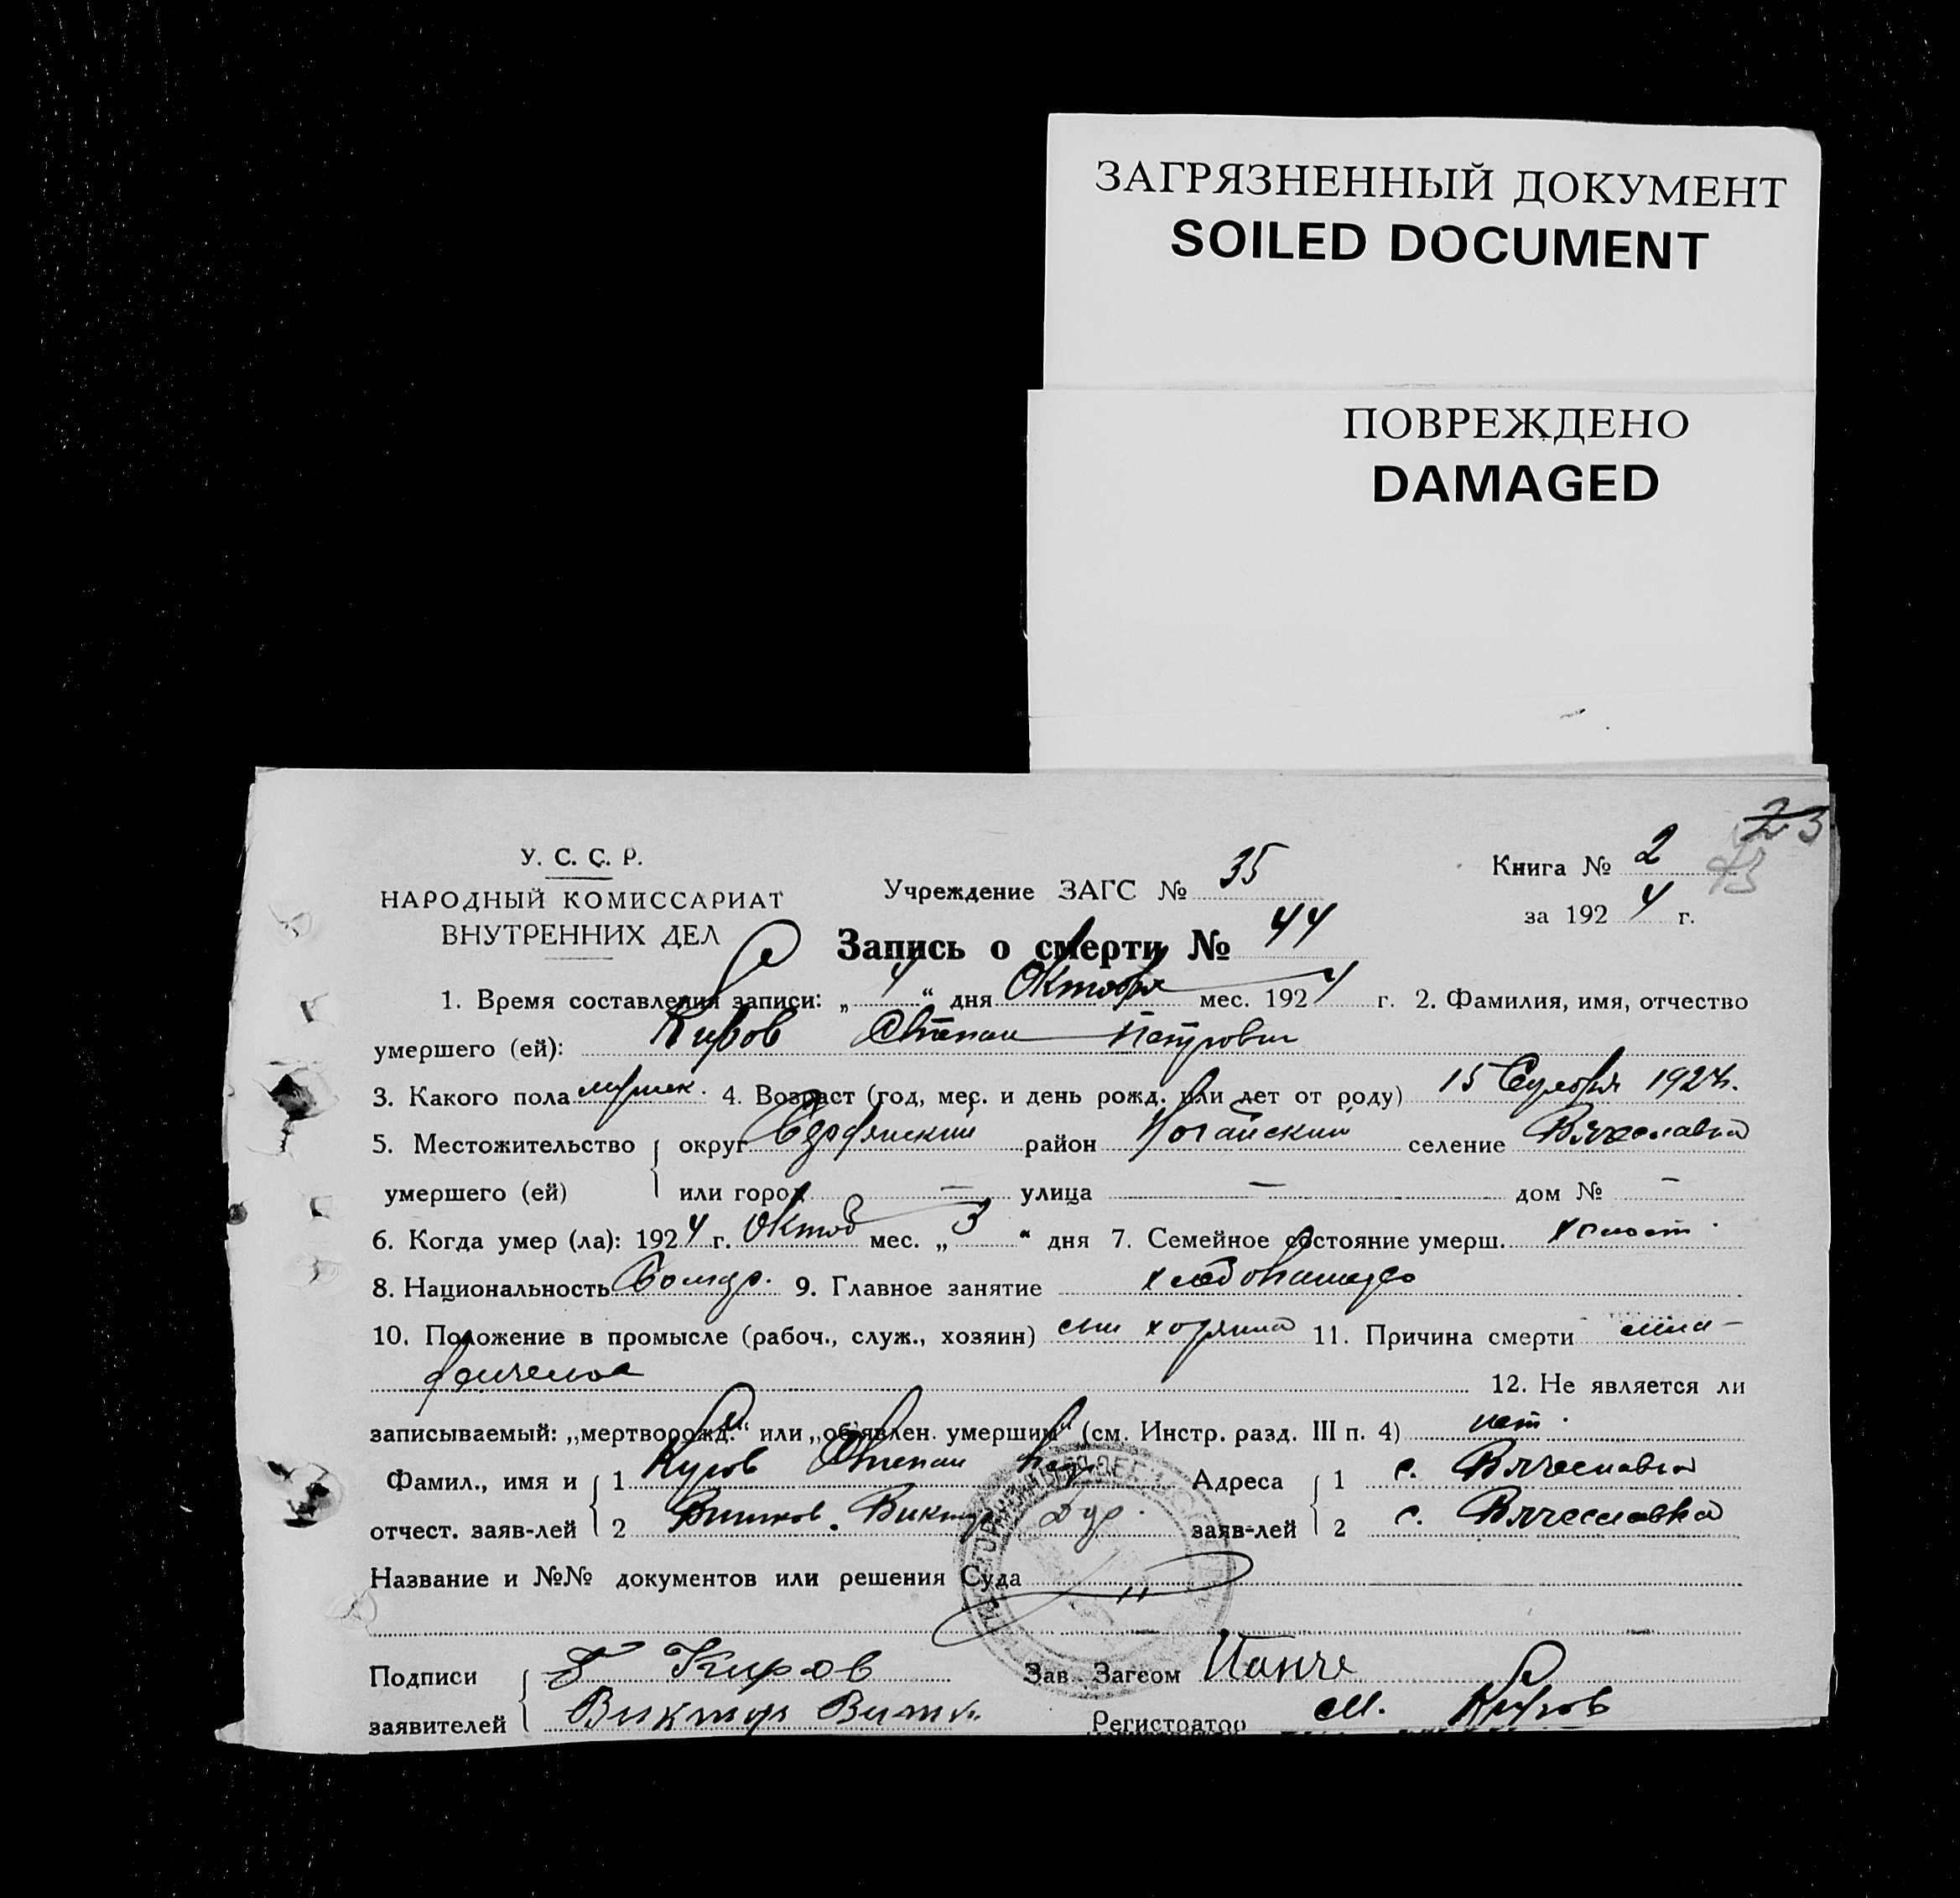 ЗАГРЯЗНЕННЫЙ ДОКУМЕНТ
SOILED DOCUMENT
ПОВРЕЖДЕНО
DAMAGED
23
У. С. С. Р.
НАРОДНЫЙ КОМИССАРИАТ
ВНУТРЕННИХ ДЕЛ
Учреждение ЗАГС № 35
Книга № 2
за 1924 г.
Запись о смерти № 44
1. Время составления записи: „4“ дня Октября мес. 1924 г. 2. Фамилия, имя, отчество
умершего (ей): Киров Степан Петрович
3. Какого пола мужск. 4. Возраст (год, мес. и день рожд. или лет от роду) 15 1924.
5. Местожительство округ Бердянский район Ногайский селение Вячеславка
умершего (ей) или город — улица — дом № —
6. Когда умер (ла): 1924 г. Октяб мес. „3“ дня 7. Семейное состояние умерш. холост.
8. Национальность Болгар. 9. Главное занятие хлебопашес
10. Положение в промысле (рабоч., служ., хозяин) сын хозяина 11. Причина смерти
12. Не является ли
записываемый: „мертворожд.“ или „об'явлен. умершим“ (см. Инстр. разд. III п. 4) нет.
Фамил., имя и 1 Киров Степан Адреса 1 с. Вячеславка
отчест. заяв-лей 2 Виктор заяв-лей 2 с. Вячеславка
Название и №№ документов или решения Суда
Подписи Киров Зав. Загсом
заявителей Виктор Регистратор М. Киров